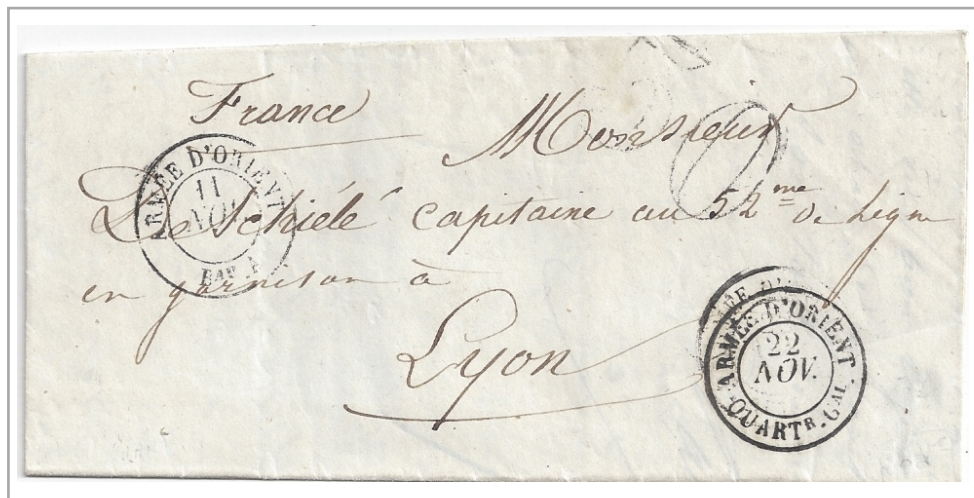 France
Monsieur
De Schiélé capitaine au 52me de Ligne
en garnison à
Lyon
ARMÉE D'ORIENT
11
NOV.
BAU A
ARMÉE D'ORIENT
22
NOV.
QUARTR. GAL